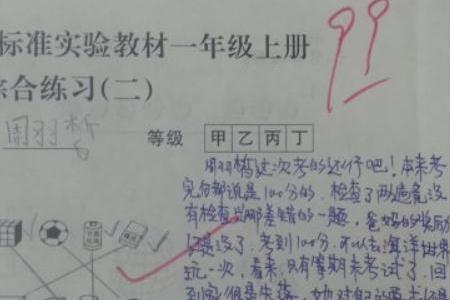 标准实验教材一年级上册
99
综合练习(二)
周羽桥
等级 甲 乙 丙 丁
周羽桥这次考的还行吧！本来考
完自都说是100分的，检查了两遍竟没
有检查出那差错的一题，爸妈的奖励
没了，考到100分，可以去海洋世界
玩一次，看来，只有等期末考试了，回